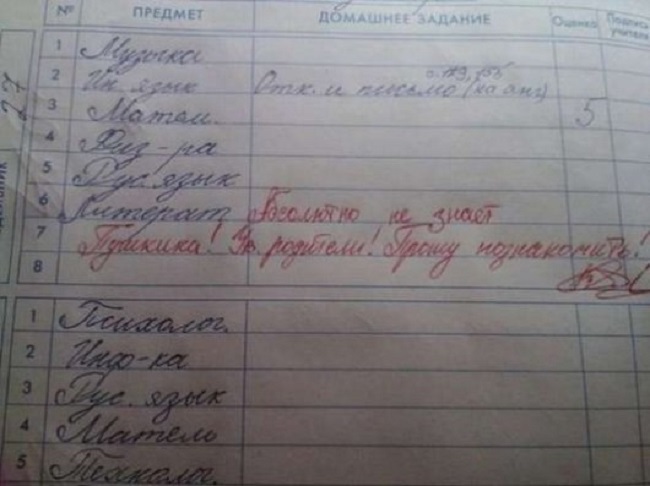 № ПРЕДМЕТ ДОМАШНЕЕ ЗАДАНИЕ Оценка Подпись учителя
27
1 Музыка
2 Ин. язык Отк. и письмо (на анг)
3 Матем. 5
4 Физ-ра
5 Рус. язык
6 Литерат. Абсолютно не знает
7 Пушкина! Ув. родители! Прошу познакомить!
8
1 Психолог.
2 Инф-ка
3 Рус. язык
4 Матем
5 Технолог.